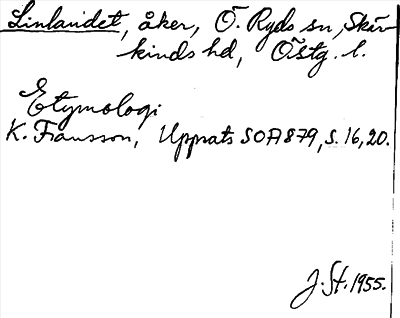 Linlandet, åker, Ö. Ryds sn, Skär-
kinds hd, Östg. l.
Etymologi
K. Fransson, Uppsats SOA 879, s. 16, 20.
J. St. 1955.